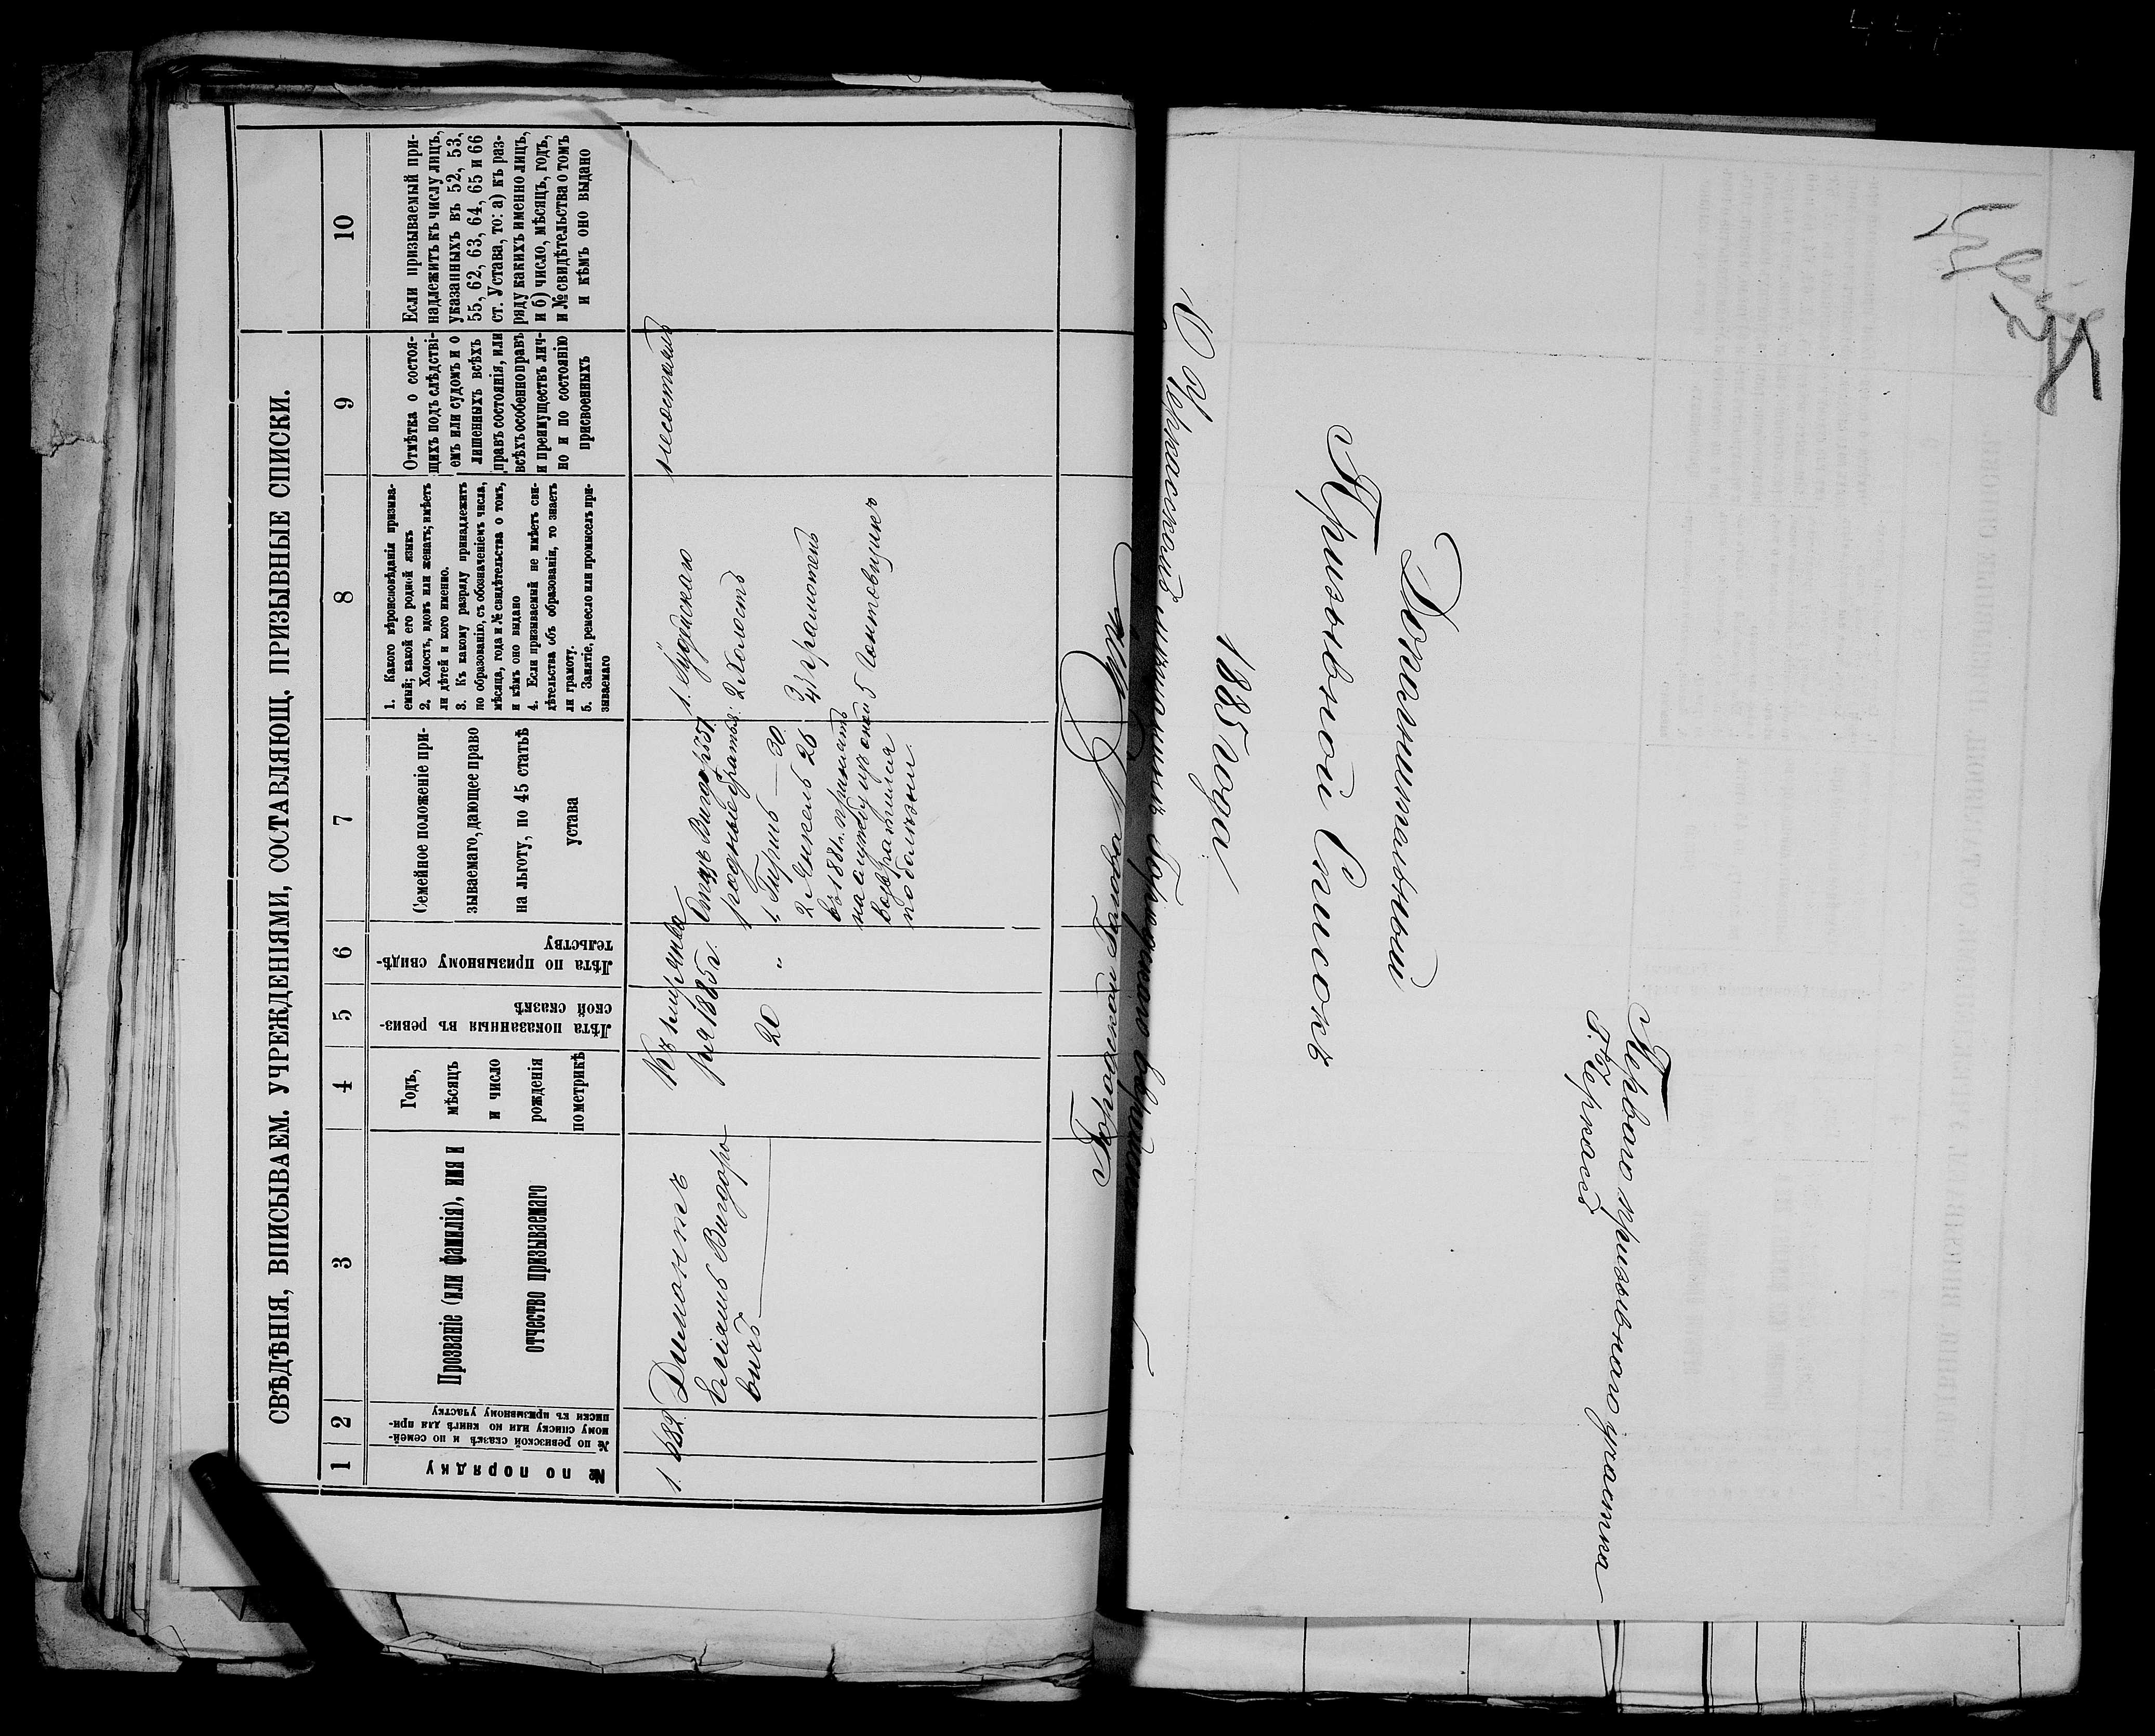 СВѢДѢНІЯ, ВПИСЫВАЕМ. УЧРЕЖДЕНІЯМИ, СОСТАВЛЯЮЩ. ПРИЗЫВНЫЕ СПИСКИ.
1
2
3
4
5
6
7
8
9
10
№ по порядку
№ по ревизской сказкѣ и по семей-
ному списку или по книгѣ для при-
писки къ призывному участку
Прозваніе (или фамилія), имя и
отчество призываемаго
Годъ,
мѣсяцъ
и число
рожденія
по метрикѣ
Лѣта показанныя въ ревиз-
ской сказкѣ
Лѣта по призывному свидѣ-
тельству
Семейное положеніе при-
зываемаго, дающее право
на льготу, по 45 статьѣ
устава
1. Какого вѣроисповѣданія призыва-
емый; какой его родной языкъ
2. Холостъ, вдовъ или женатъ; имѣетъ
ли дѣтей и кого именно.
3. Къ какому разряду принадлежитъ
по образованію, съ обозначеніемъ числа,
мѣсяца, года и № свидѣтельства о томъ,
и кѣмъ оно выдано
4. Если призываемый не имѣетъ сви-
дѣтельства объ образованіи, то знаетъ
ли грамоту.
5. Занятіе, ремесло или промыселъ при-
зываемаго
Отмѣтка о состоя-
щихъ подъ слѣдстві-
емъ или судомъ и о
лишенныхъ всѣхъ
правъ состоянія, или
всѣхъ особенно правъ
и преимуществъ лич-
но и по состоянію
присвоенныхъ
Если призываемый при-
надлежитъ къ числу лицъ,
указанныхъ въ 52, 53,
55, 62, 63, 64, 65 и 66
ст. Устава, то: а) къ раз-
ряду какихъ именно лицъ,
и б) число, мѣсяцъ, годъ,
и № свидѣтельства о томъ
и кѣмъ оно выдано
1.
682
Димантъ
Ельяшъ Вигдоро
вичъ
Къ 1 января
1885 г.
20
"
Отецъ Вигдоръ 57
родные братья:
1. Гиршъ — 30
2. Янкель 26
въ 1881 г. принятъ
на службу изъ оной
возвратился
по болезни
1. Іудейскаго
2 Холостъ
3/4 грамотенъ
5 Конторщикъ
несостоитъ
Городской Голова
О Черкасскихъ мещанинѣ
1885 года
Призывной Списокъ
Дополнительный
Перваго призывнаго участка
г. Черкасъ